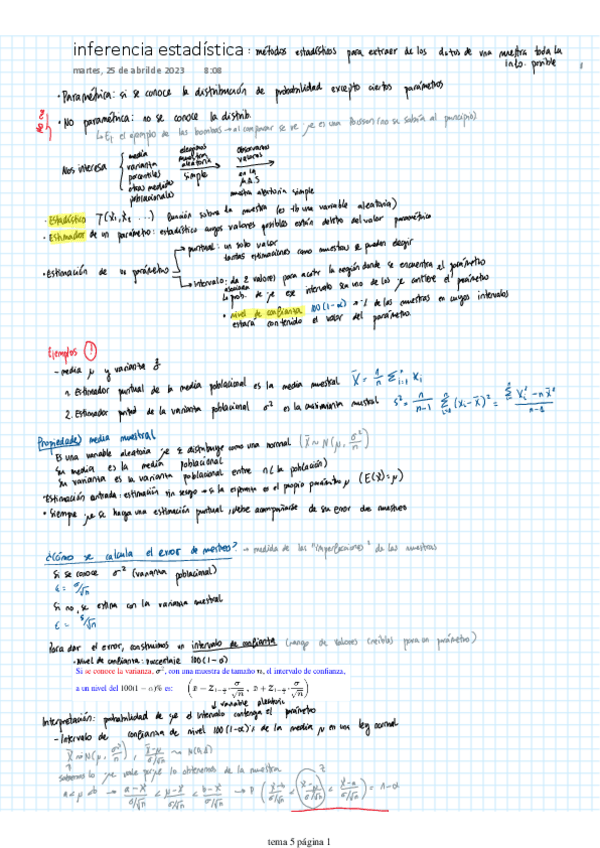 inferencia estadística : métodos estadísticos para extraer de los datos de una muestra toda la info. posible
martes, 25 de abril de 2023 8:08
· Paramétrica: si se conoce la distribución de probabilidad excepto ciertos parámetros
· No paramétrica: no se conoce la distrib.
↳ Ej el ejemplo de las bombas → al continuar se ve que es una Poisson (no se sabría al principio)
Nos interesa
media
varianza
percentiles
otras medidas poblacionales
elegimos muestra aleatoria simple
observamos valores
en la M.A.S
muestra aleatoria simple
· Estadístico T(X₁, X₂ ...) función sobre la muestra (es tb una variable aleatoria)
· Estimador de un parámetro: estadístico cuyos valores posibles están dentro del valor paramétrico
· Estimación de un parámetro
puntual: un solo valor
tantas estimaciones como muestras se pueden elegir
intervalo: da 2 valores para acotar la región donde se encuentra el parámetro
la prob. de que ese intervalo sea uno de los que contiene el parámetro
· nivel de confianza 100(1-α) = % de las muestras en cuyos intervalos
estará contenido el valor del parámetro
Ejemplos !
- media μ y varianza
1. Estimador puntual de la media poblacional es la media muestral X̄ = 1/n Σⁿᵢ₌₁ Xᵢ
2. Estimador puntual de la varianza poblacional σ² es la cuasivarianza muestral s² = n/n-1 Σ (xᵢ - x̄)² = Σ xᵢ² - n x̄² / n-1
Propiedades media muestral
Es una variable aleatoria que se distribuye como una normal (X̄ ~ N(μ, σ²/n))
Su media es la media poblacional
Su varianza es la varianza poblacional entre n (la población)
· Estimación centrada: estimación sin sesgo → si la esperanza es el propio parámetro μ (E(x̄) = μ)
· Siempre que se haga una estimación puntual, debe acompañarse de su error de muestreo
¿Cómo se calcula el error de muestreo? → medida de las "imperfecciones" de las muestras
Si se conoce σ² (varianza poblacional)
ε = σ/√n
Si no, se estima con la varianza muestral
ε = s/√n
Para dar el error, construimos un intervalo de confianza (rango de valores creíbles para un parámetro)
· Nivel de confianza: porcentaje 100(1-α)
Si se conoce la varianza, σ², con una muestra de tamaño n, el intervalo de confianza,
a un nivel del 100(1 − α)% es: (x̄ − z₁₋α/₂ · σ/√n , x̄ + z₁₋α/₂ · σ/√n)
↓ variable aleatoria
Interpretación: probabilidad de que el intervalo contenga el parámetro
- Intervalo de confianza de nivel 100(1-α)% de la media μ en una ley normal
X̄ ~ N(μ, σ²/n) , x̄-μ / σ/√n ~ N(0,1)
sabemos lo que vale porque lo obtenemos de la muestra
a < μ < b → a-x̄ / σ/√n < μ-x̄ / σ/√n < b-x̄ / σ/√n → P (x̄-b / σ/√n < x̄-μ / σ/√n < x̄-a / σ/√n) = 1-α
tema 5 página 1